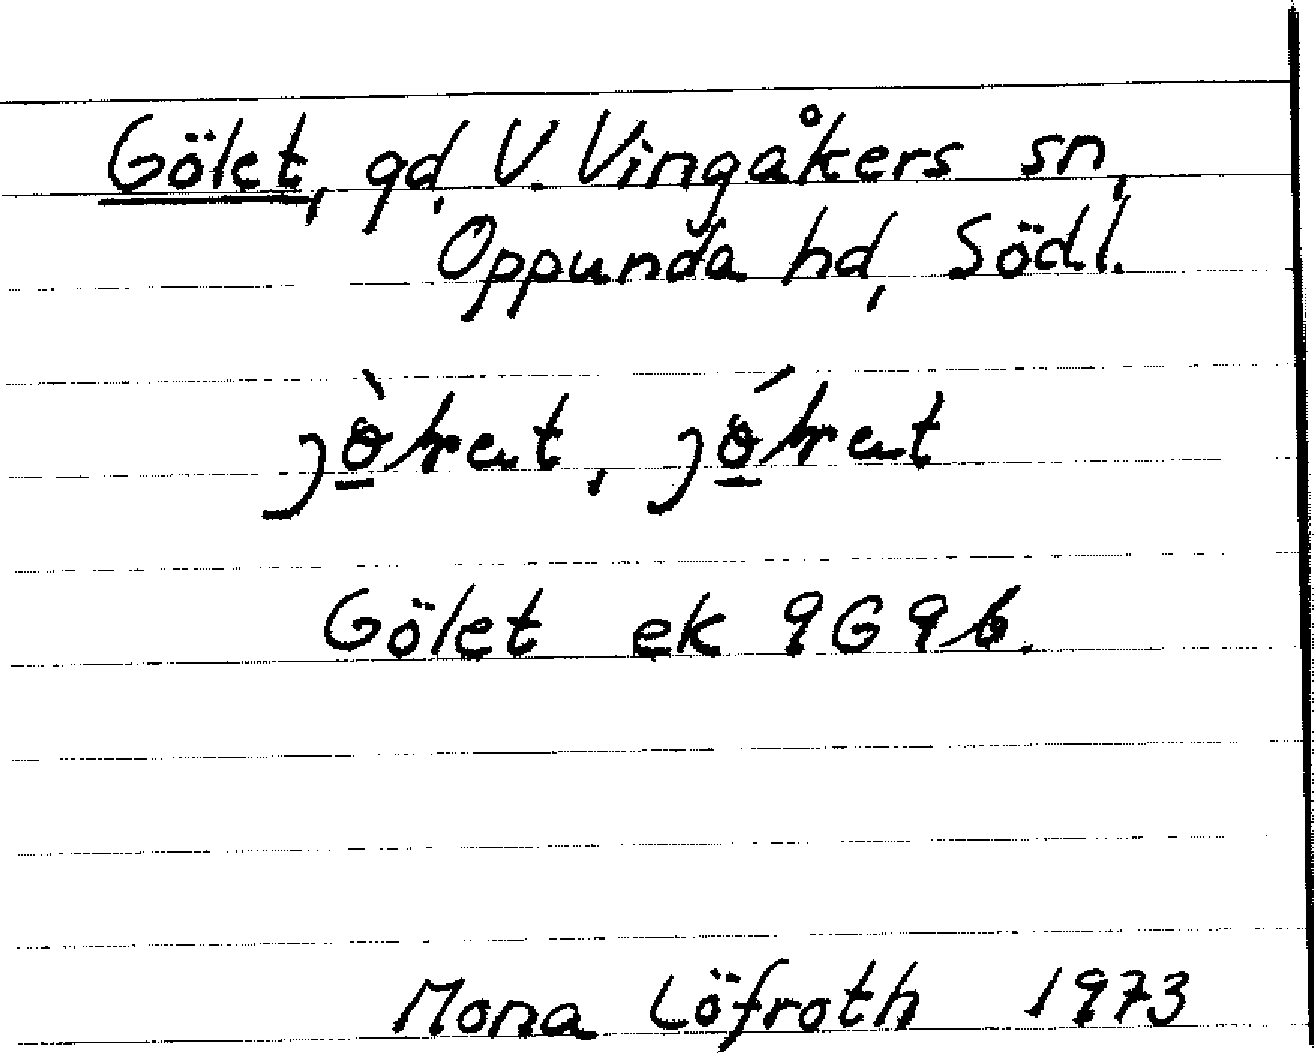 Gölet, gd, V. Vingåkers sn,
Oppunda hd, Södl.
Gölet ek 9G9b.
Mona Löfroth 1973